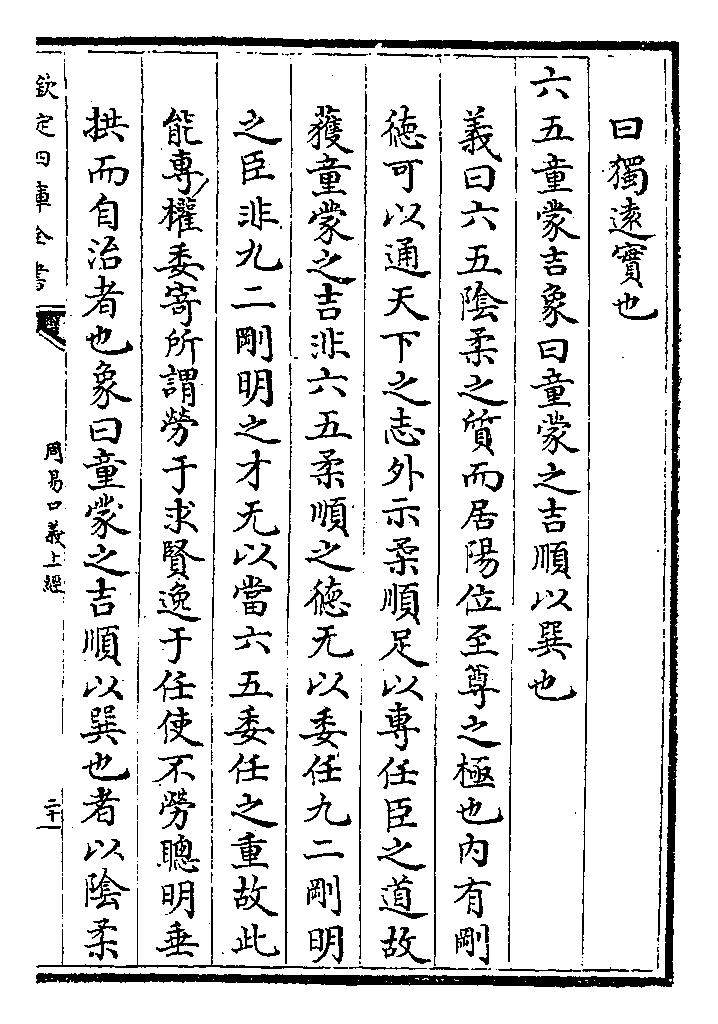 曰獨逺實也
六五童蒙吉象曰童蒙之吉順以巽也
義曰六五陰柔之質而居陽位至尊之極也内有剛
徳可以通天下之志外示柔順足以專任臣之道故
獲童蒙之吉非六五柔順之徳无以委任九二剛明
之臣非九二剛明之才无以當六五委任之重故此
能專權委寄所謂勞于求賢逸于任使不勞聰明垂
拱而自治者也象曰童蒙之吉順以巽也者以隂柔
欽定四庫全書
周易口義上經
二十一